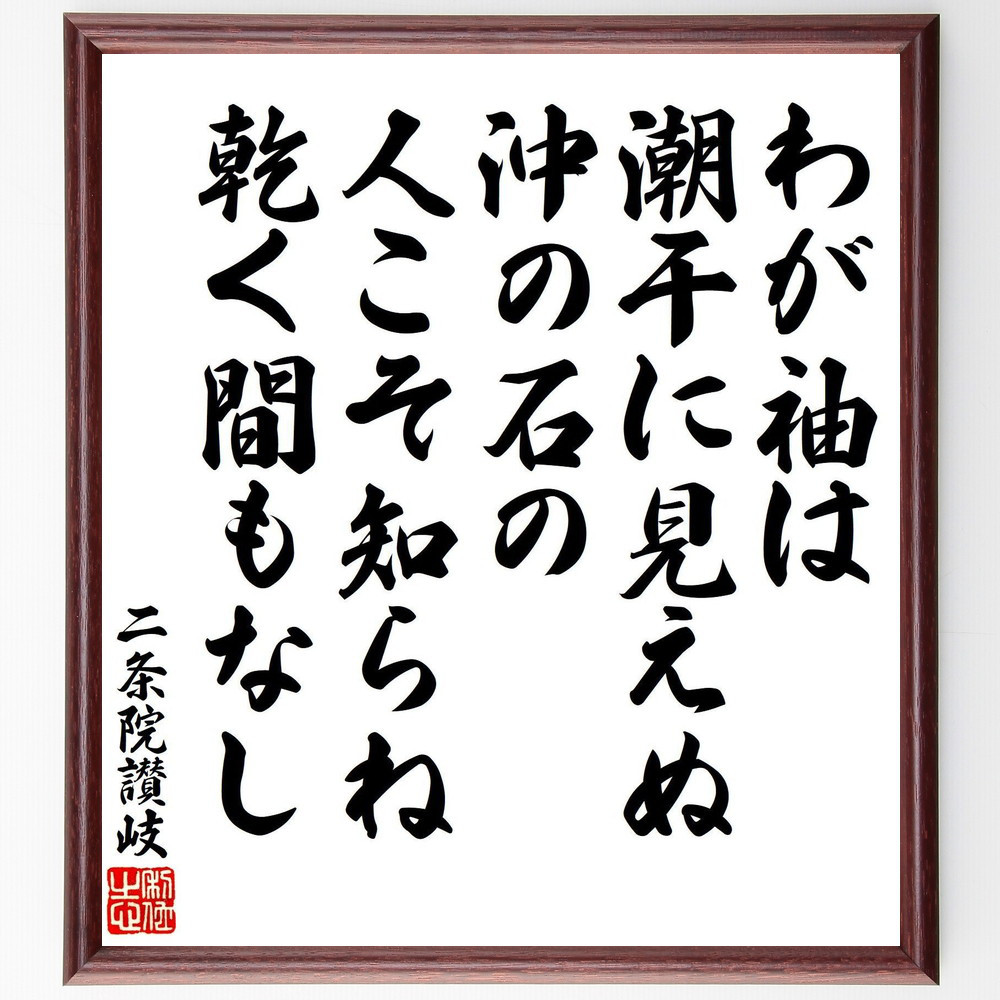 わが袖は
潮干に見えぬ
沖の石の
人こそ知らね
乾く間もなし
二条院讃岐